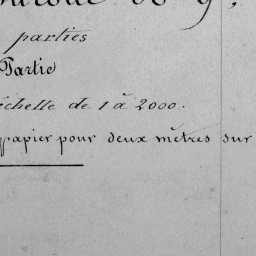 parties
Partie
chelle de 1 à 2000.
papier pour deux mètres sur